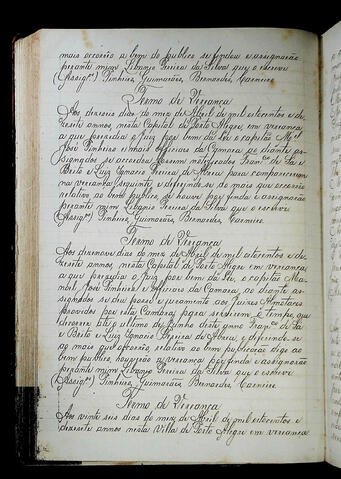 mais occorão a bem do publico se findou e assignarão
perante mim Libanio Pereira da Silva que o escrevi
(Assig.os) Pinheiro, Guimarães, Bernardes, Carneiro.
Termo de Vereança
Aos dezeseis dias do mez de Abril de mil oitocentos e de
zesete annos, nesta Capital de Porto Alegre, em vereança
a que presedia o Juiz por bem da Lei o Capitão M.el
José Pinheiro e mais officiaes da Camara ao diante as-
signados se accordou fossem notificados Fran.co de Sá
e Brito e Luiz Ignacio Pereira de Abreu para comparecerem
na vereança seguinte e deferindo-se do mais que occorria
relativo ao bem publico se houve por finda e assignarão
perante mim Libanio Pereira da Silva que o escrevi
(Assig.os) Pinheiro, Guimarães, Bernardes, Carneiro.
Termo de Vereança
Aos dezenove dias do mez de Abril de mil oitocentos e de
zesete annos, nesta Capital de Porto Alegre em vereança
a que presedia o Juiz por bem da Lei, o Capitão Ma-
noel José Pinheiro e officiaes da Camara, ao diante as-
signados se deu posse e juramento aos Juizes Almotaces
provados por esta Camara para servirem o tempo que
decorre até o ultimo de Junho deste anno Fran.co de Sá
e Brito e Luiz Ignacio Pereira de Abreu, e deferindo-se
do mais que
bem publico, houve
perante mim Libanio Pereira da Silva que o escrevi
(Assig.os) Pinheiro, Guimarães, Bernardes, Carneiro
Termo de Vereança
Aos vinte seis dias do mez de Abril de mil oitocentos e
dezesete annos nesta Villa de Porto Alegre em vereança